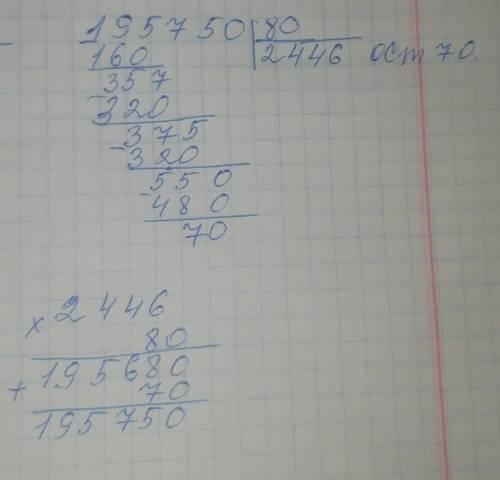 195750 | 80
160 | 2446 ост 70.
357
- 320
375
- 320
550
- 480
70
x 2446
80
195680
+ 70
195750